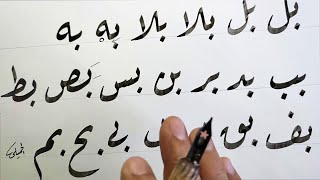 بل بل بلا بلا به به
بب بد بر بن بس بَص بط
بف بق بی بح بم